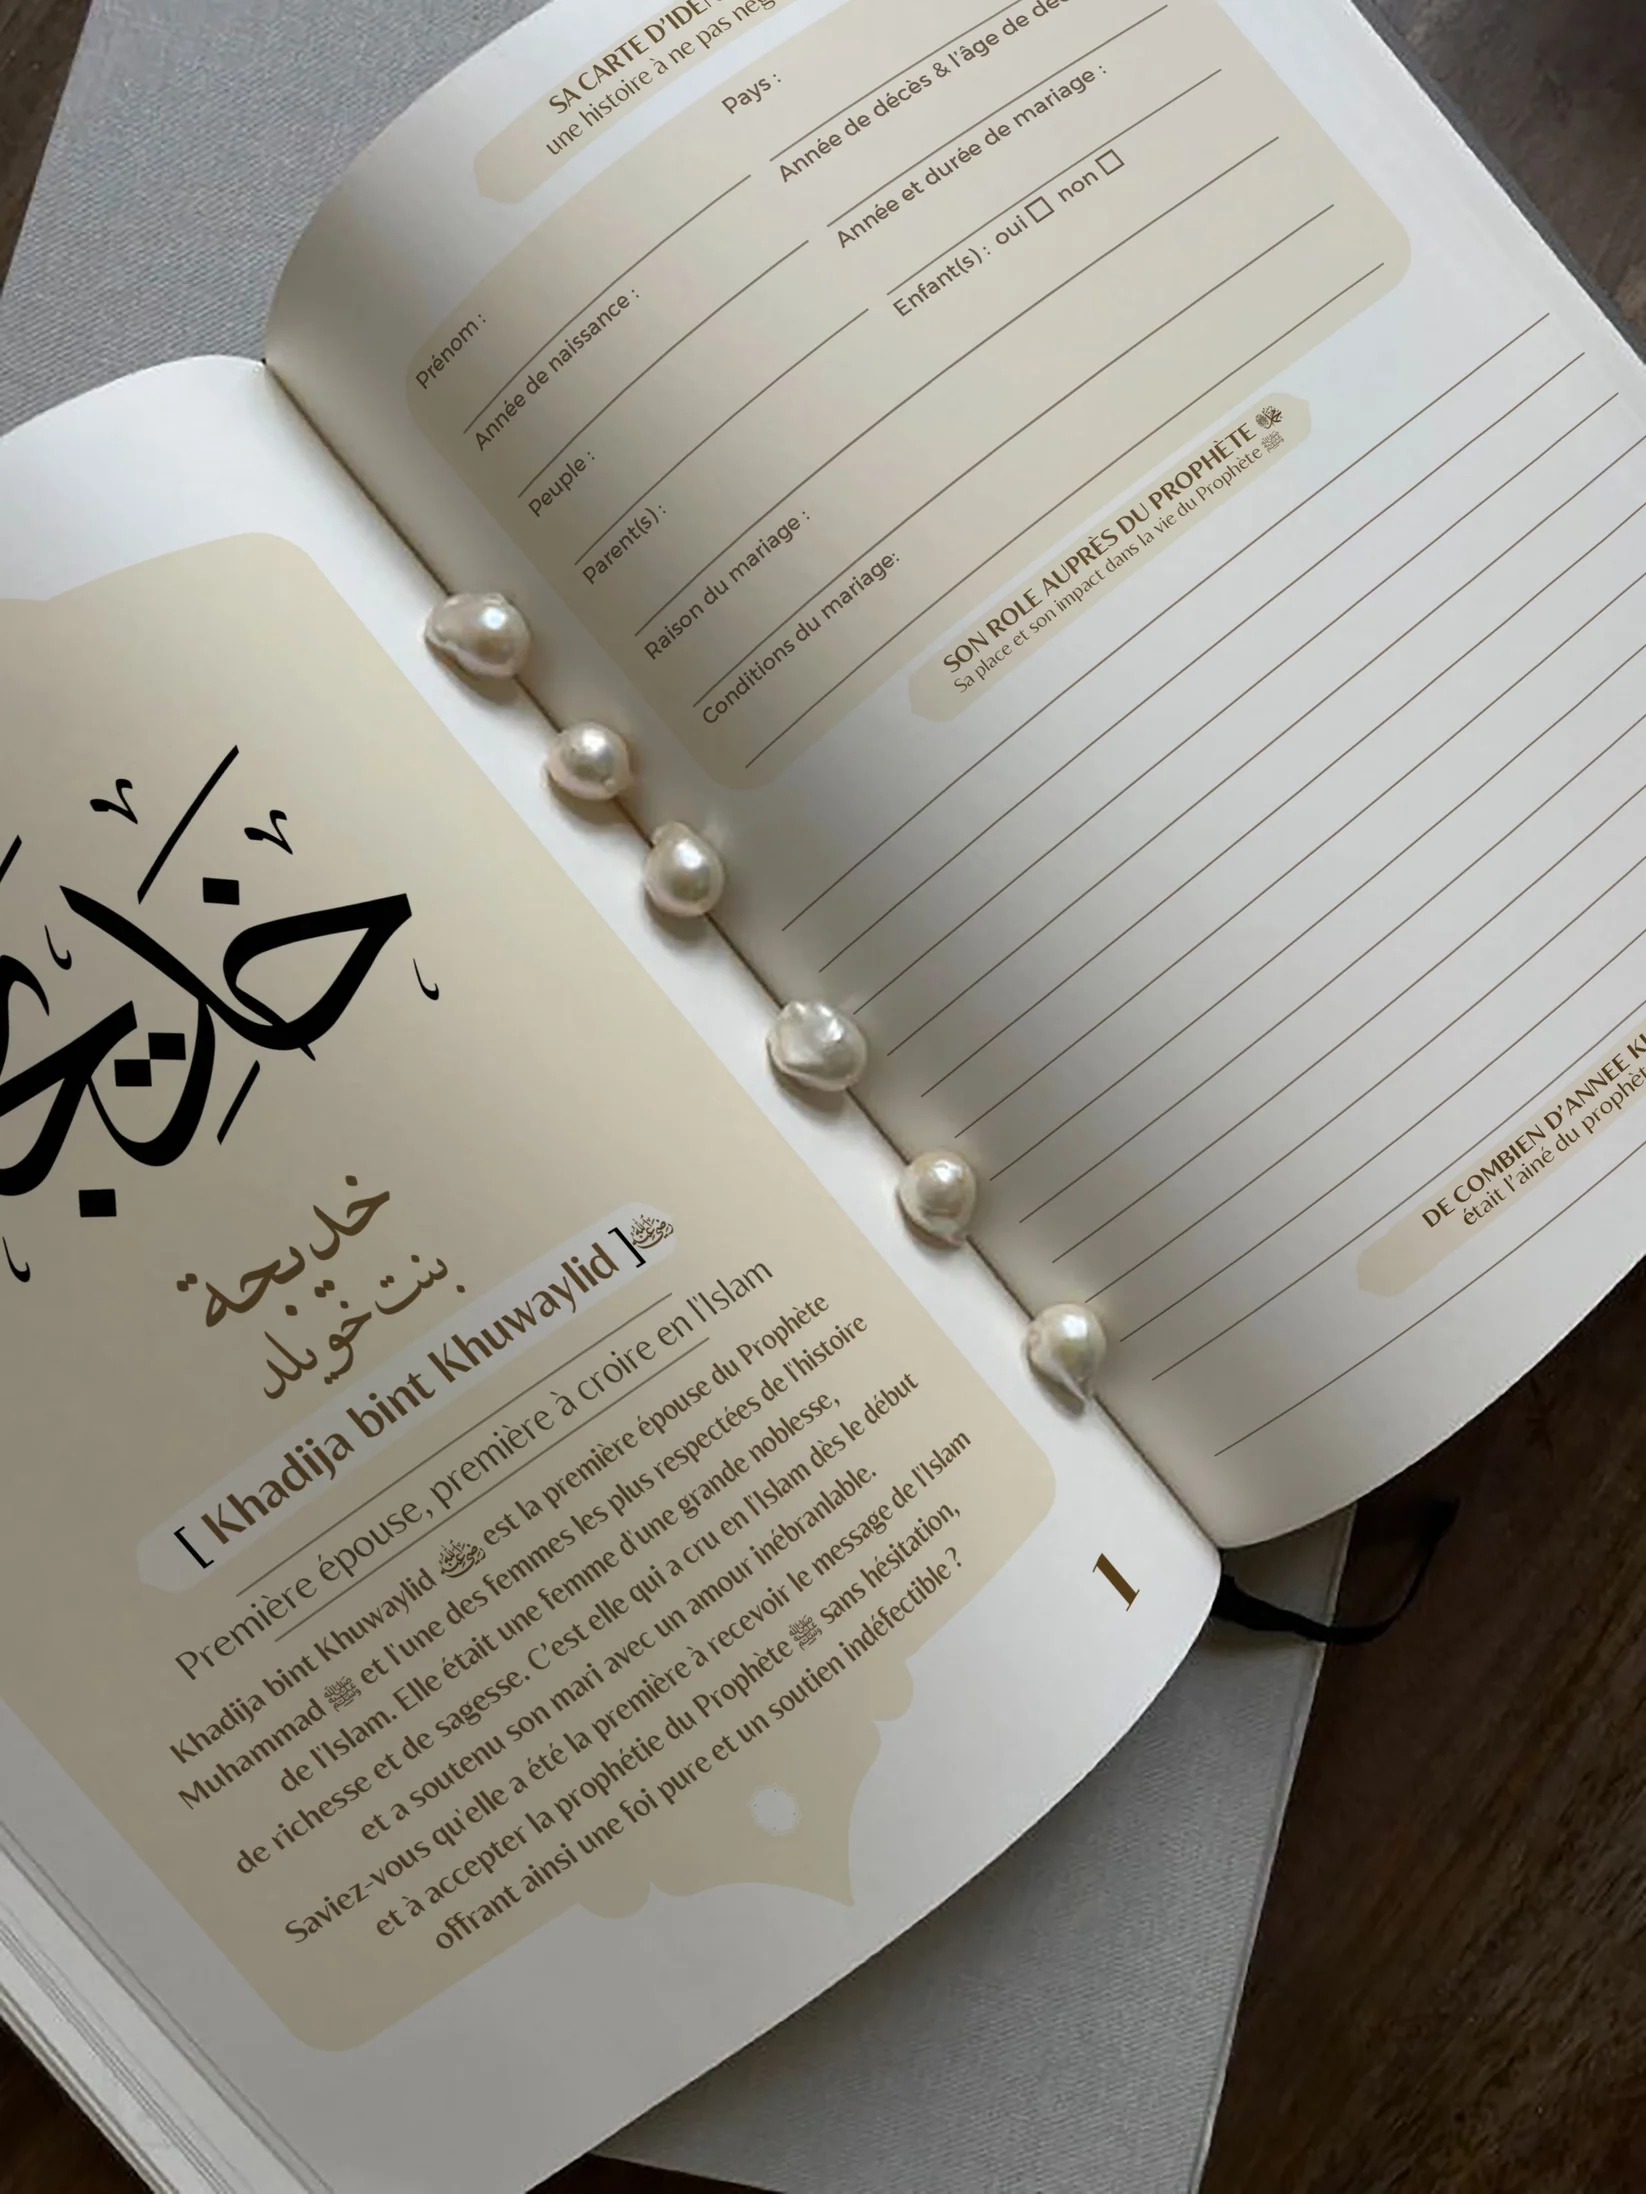 خديجة
بنت خويلد
[ Khadija bint Khuwaylid ] رضي الله عنها
Première épouse, première à croire en l'Islam
Khadija bint Khuwaylid رضي الله عنها est la première épouse du Prophète
Muhammad ﷺ et l'une des femmes les plus respectées de l'histoire
de l'Islam. Elle était une femme d'une grande noblesse,
de richesse et de sagesse. C'est elle qui a cru en l'Islam dès le début
et a soutenu son mari avec un amour inébranlable.
Saviez-vous qu'elle a été la première à recevoir le message de l'Islam
et à accepter la prophétie du Prophète ﷺ sans hésitation,
offrant ainsi une foi pure et un soutien indéfectible ?
1
SA CARTE D'
une histoire à ne pas
Prénom :
Pays :
Année de naissance :
Année de décès & l'âge de
Peuple :
Année et durée de mariage :
Parent(s) :
Enfant(s) : oui □ non □
Raison du mariage :
Conditions du mariage:
SON ROLE AUPRÈS DU PROPHÈTE ﷺ
Sa place et son impact dans la vie du Prophète ﷺ
DE COMBIEN D'ANNEE
était l'ainé du